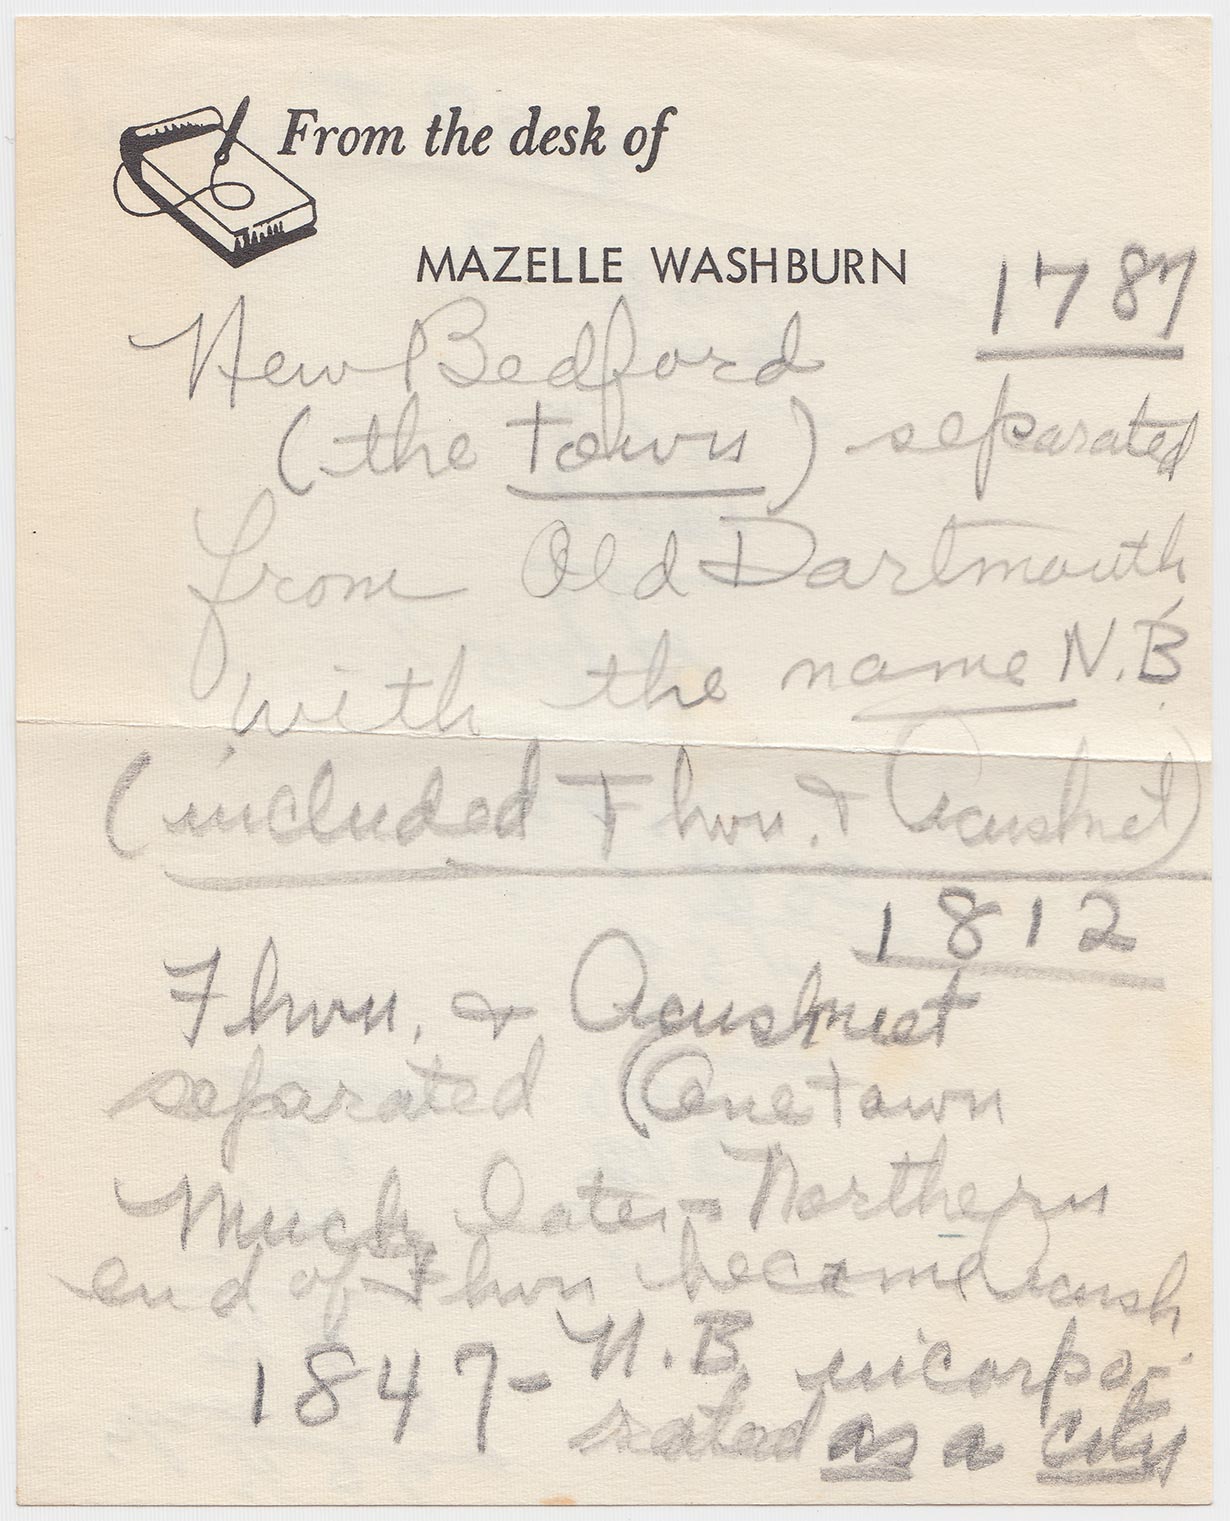 From the desk of
MAZELLE WASHBURN
1787
New Bedford
(the town) separated
from Old Dartmouth
with the name N.B.
(included Fhvn. & Acushnet)
1812
Fhvn. & Acushnet
separated (One town
Much later - Northern
end of Fhvn became Acush
1847- N.B. incorpo-
rated as a city